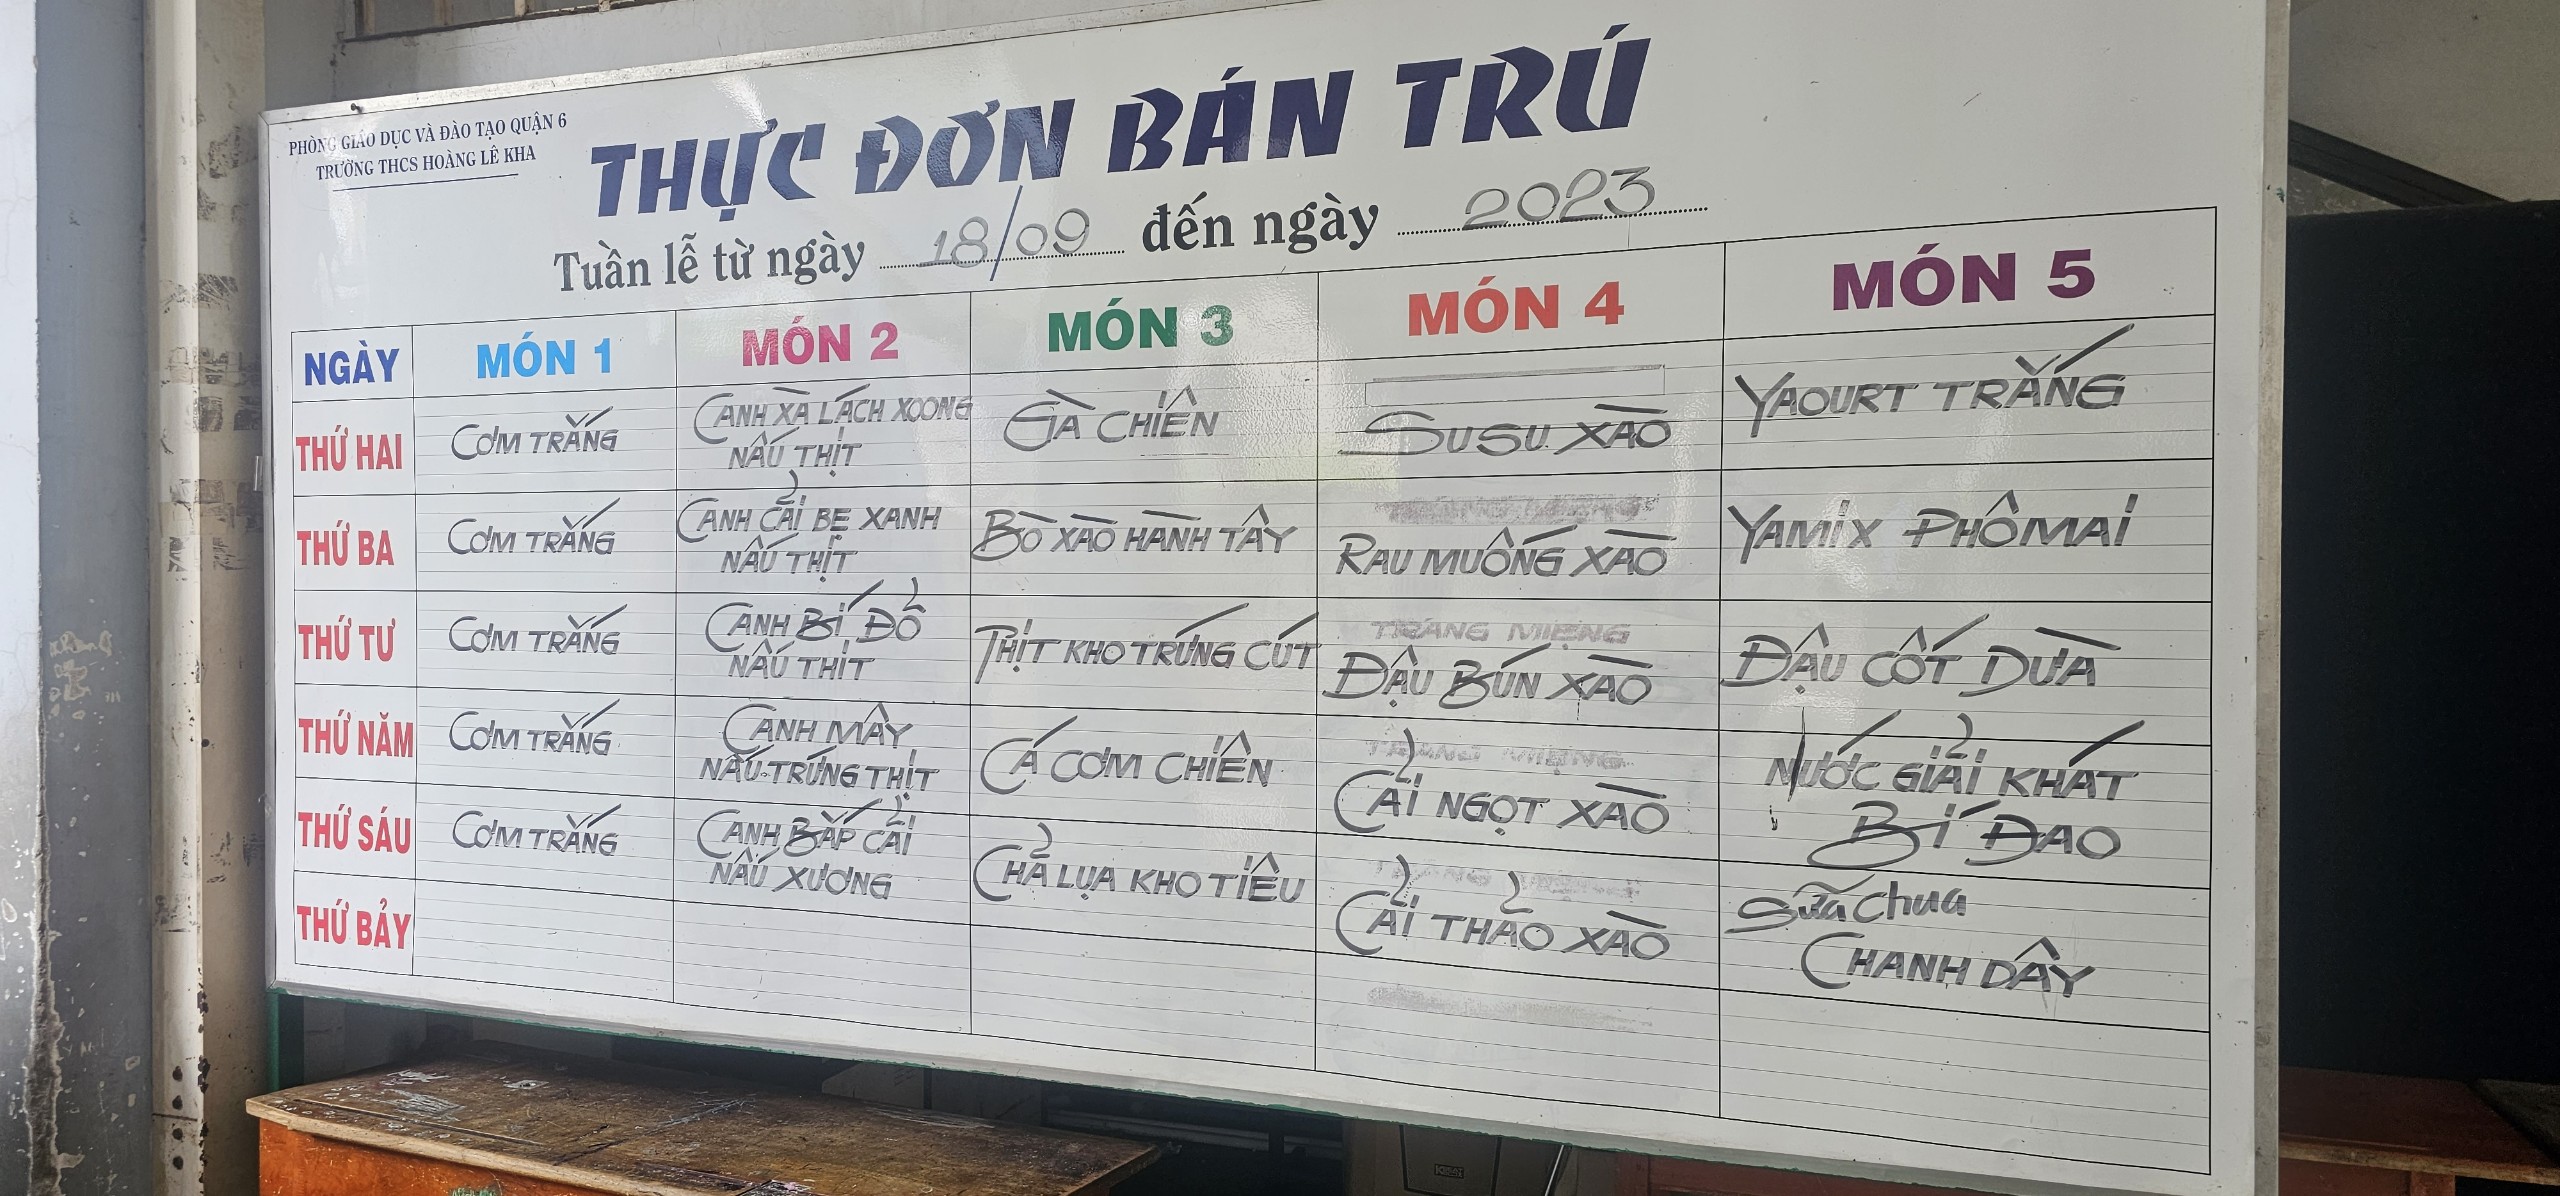 PHÒNG GIÁO DỤC VÀ ĐÀO TẠO QUẬN 6
TRƯỜNG THCS HOÀNG LÊ KHA
THỰC ĐƠN BÁN TRÚ
Tuần lễ từ ngày 18/09 đến ngày 2023
NGÀY MÓN 1 MÓN 2 MÓN 3 MÓN 4 MÓN 5
THỨ HAI
CƠM TRẮNG
CANH XÀ LÁCH XOONG
NẤU THỊT
GÀ CHIÊN
SUSU XÀO
YAOURT TRẮNG
THỨ BA
CƠM TRẮNG
CANH CẢI BẸ XANH
NẤU THỊT
BÒ XÀO HÀNH TÂY
RAU MUỐNG XÀO
YAMIX PHÔMAI
THỨ TƯ
CƠM TRẮNG
CANH BÍ ĐỎ
NẤU THỊT
THỊT KHO TRỨNG CÚT
TRÁNG MIỆNG
ĐẬU BÚN XÀO
ĐẬU CỐT DỪA
THỨ NĂM
CƠM TRẮNG
CANH MÂY
NẤU TRỨNG THỊT
CÁ CƠM CHIÊN
CẢI NGỌT XÀO
NƯỚC GIẢI KHÁT
BÍ ĐAO
THỨ SÁU
CƠM TRẮNG
CANH BẮP CẢI
NẤU XƯƠNG
CHẢ LỤA KHO TIÊU
CẢI THẢO XÀO
Sữa Chua
CHANH DÂY
THỨ BẢY